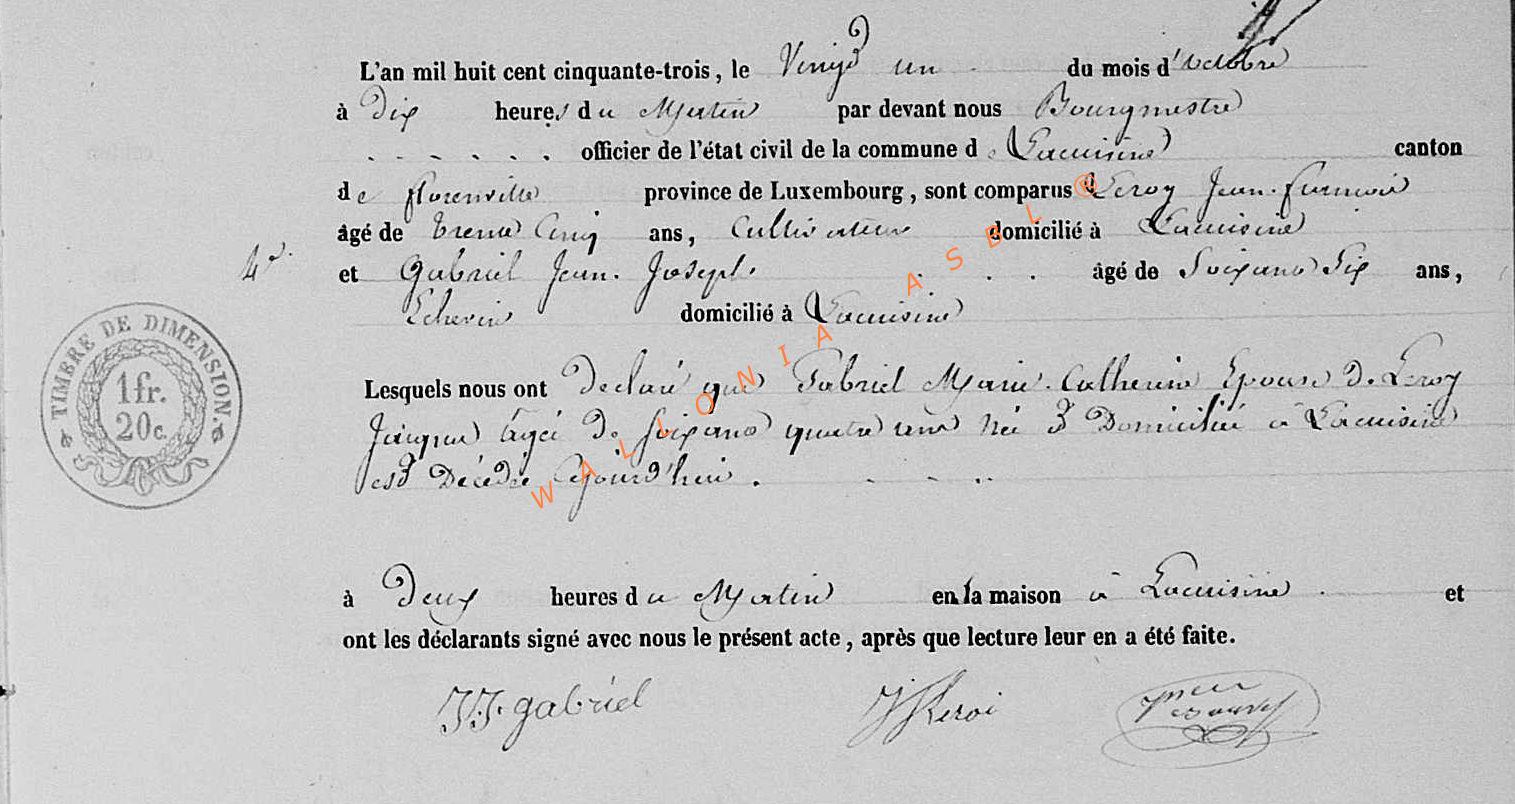 L'an mil huit cent cinquante-trois, le Vingt un du mois d'octobre
à Dix heures du Matin par devant nous Bourgmestre
. . . . . . officier de l'état civil de la commune de Lacuisine canton
de florenville province de Luxembourg, sont comparus Leroy Jean
âgé de trente Cinq ans, Cultivateur domicilié à Lacuisine
4e.
et Gabriel Jean Joseph . . . âgé de Soixante Six ans,
Echevin domicilié à Lacuisine
TIMBRE DE DIMENSION.
1 fr.
20 c.
Lesquels nous ont Declaré que Gabriel Marie Catherine Epouse De Leroy
Jacque Agée De Soixante quatre ans née et Domiciliée à Lacuisine
est Décédée Aujourd'hui . - - ..
à Deux heures du Matin en la maison à Lacuisine . et
ont les déclarants signé avec nous le présent acte, après que lecture leur en a été faite.
J.J. gabriel JfLeroi
WALLONIA ASBL ®